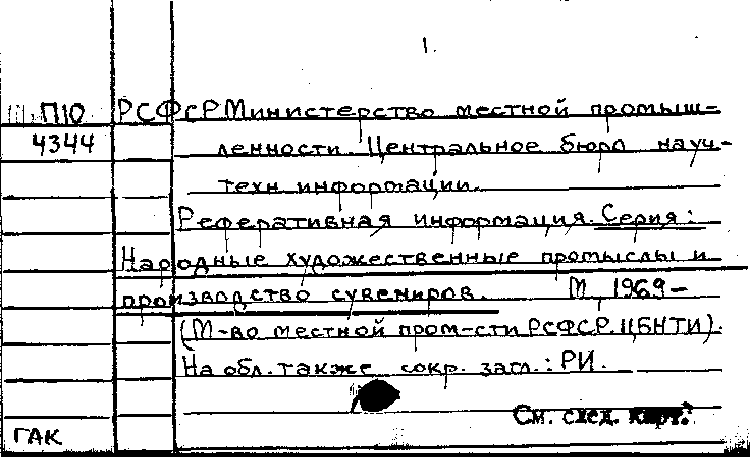 1.
П10 РСФСР Министерство местной промыш-
4344 ленности. Центральное бюро науч-
техн. информации.
Реферативная информация. Серия:
Народные художественные промыслы и
производство сувениров. М., 1969-
(М-во местной пром-сти РСФСР. ЦБНТИ).
На обл. также сокр. загл.: РИ.
См. след. карт.
ГАК